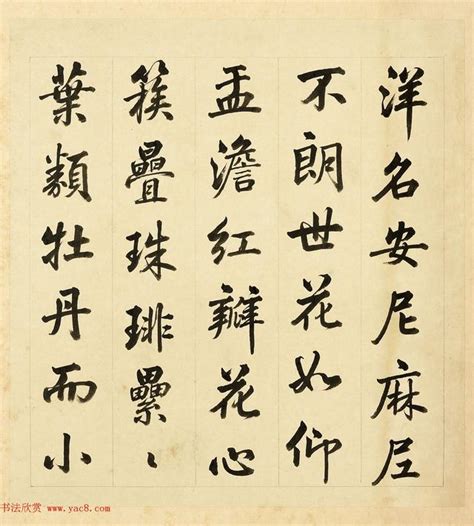 洋名安尼麻尼
不朗世花如仰
盂澹紅瓣花心
簇疊珠琲纍〻
葉類牡丹而小
书法欣赏 www.yac8.com